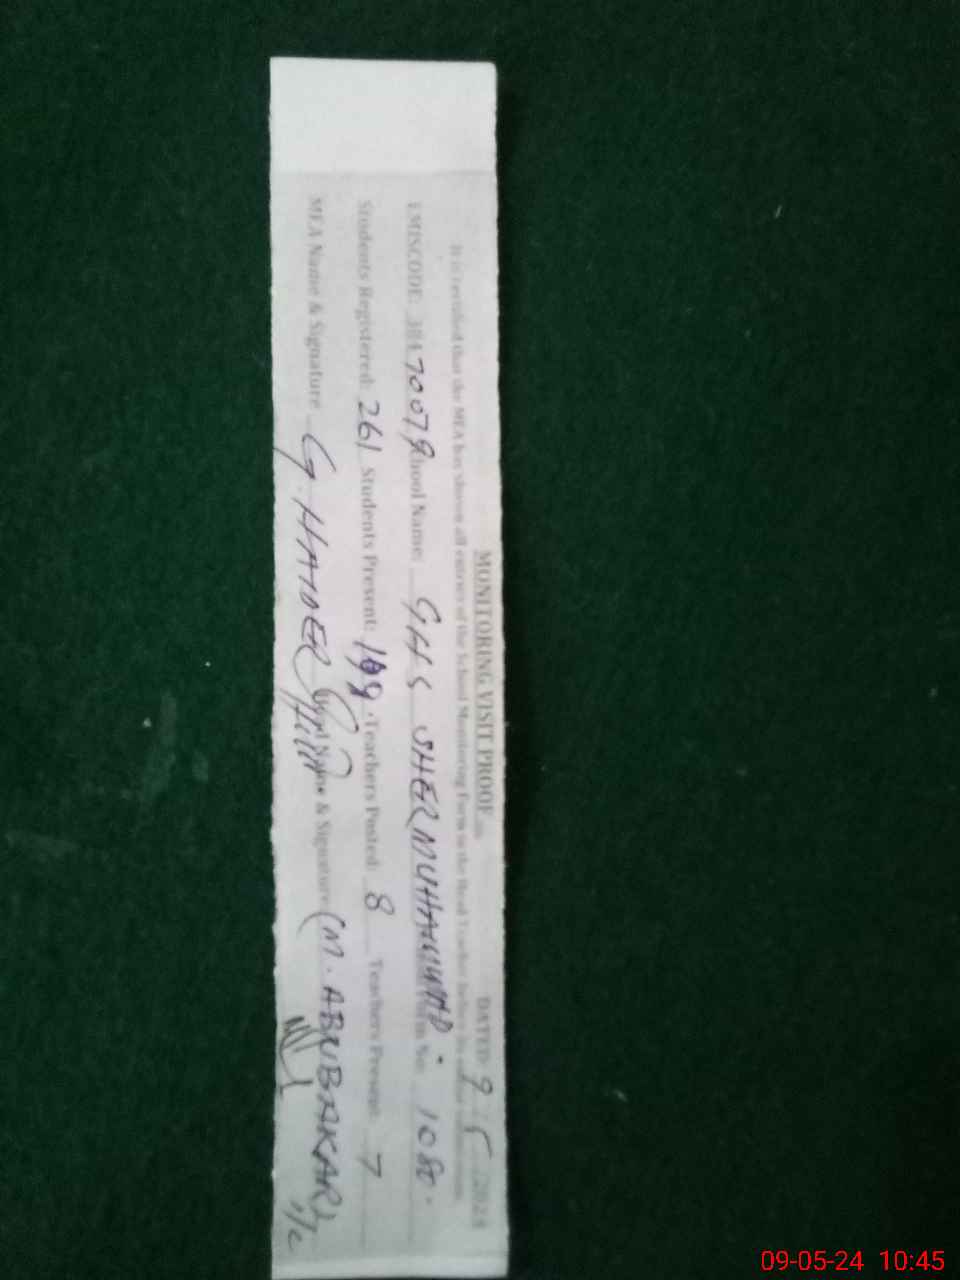 MONITORING VISIT PROOF DATED: 9 5 2024
It is certified that the MEA has shown all entries of the School Monitoring Form to the Head Teacher before its
EMISCODE: 38470079 School Name: GHS SHER MUHAMMAD. Form No: 1080.
Students Registered: 261 Students Present: Teachers Posted: 8 Teachers Present: 7
MEA Name & Signature G. HAIDER Name & Signature (M. ABUBAKAR) i/c
09-05-24 10:45